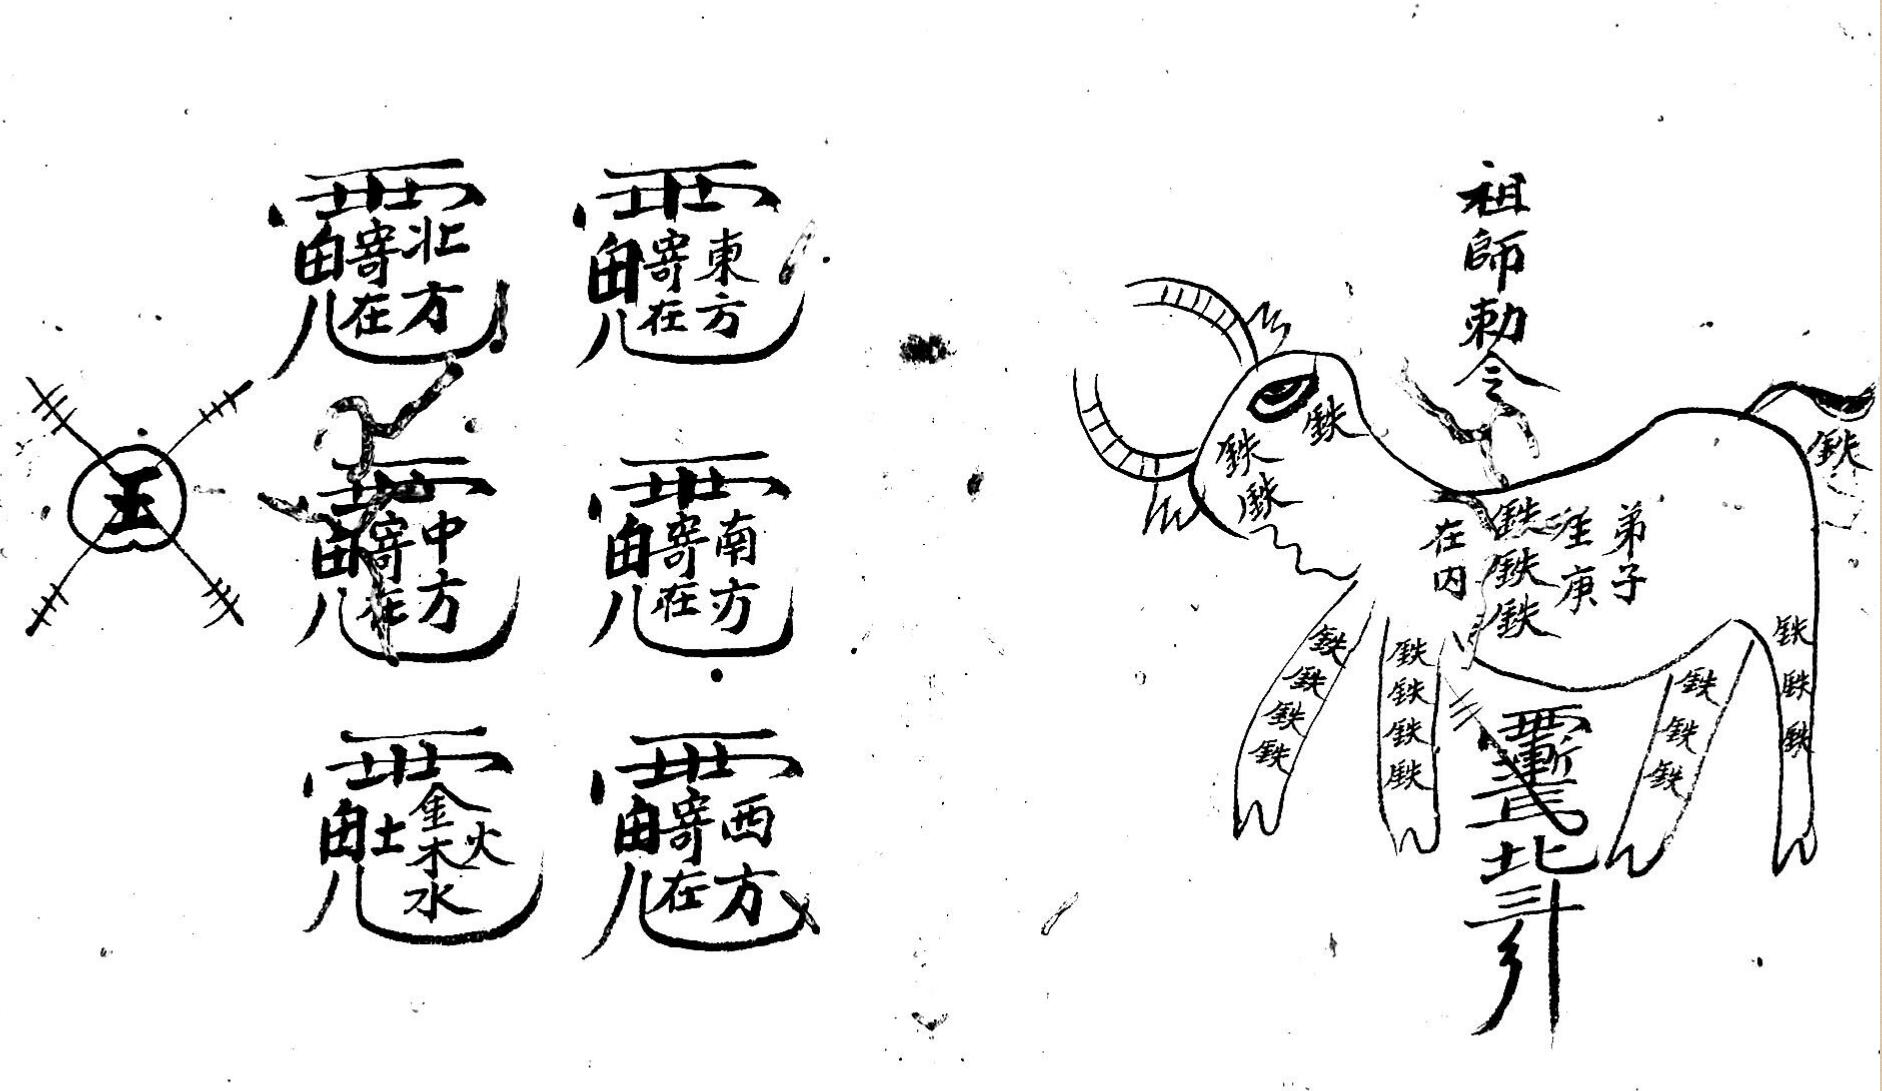 祖師勅令
鉄
弟子
泩庚
鉄鉄鉄
在内
鉄
鉄鉄
鉄鉄鉄
鉄鉄鉄
鉄鉄鉄鉄
鉄鉄鉄鉄
東方
寄在
南方
寄在
西方
寄在
北方
寄在
中方
寄在
金木水火土